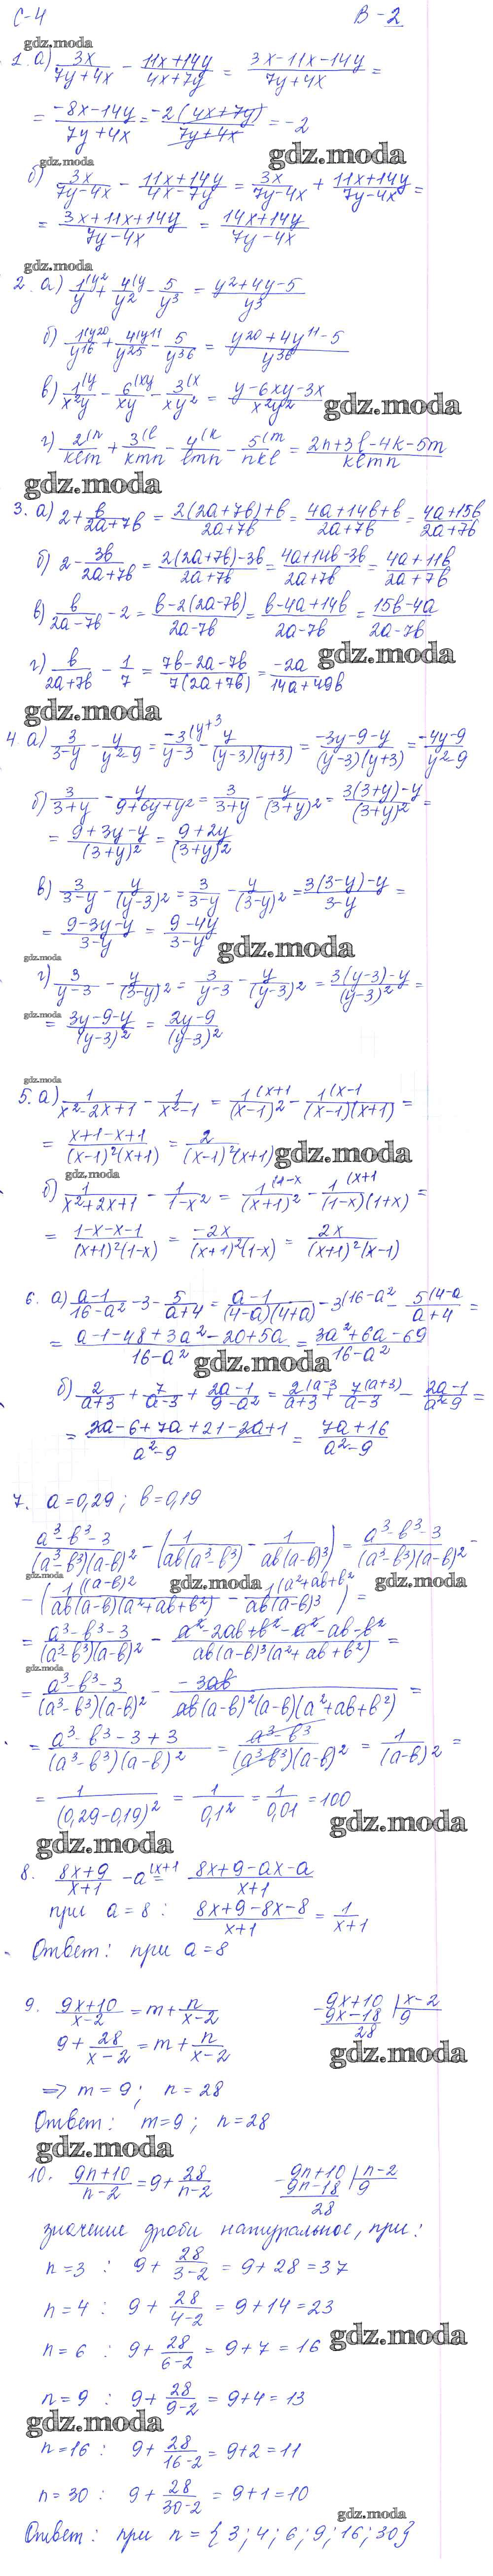 С-4 В-2
gdz.moda
1. а) 3x/(7y+4x) - (11x+14y)/(4x+7y) = (3x-11x-14y)/(7y+4x) =
= (-8x-14y)/(7y+4x) = -2(4x+7y)/(7y+4x) = -2
gdz.moda
gdz.moda
б) 3x/(7y-4x) - (11x+14y)/(4x-7y) = 3x/(7y-4x) + (11x+14y)/(7y-4x) =
= (3x+11x+14y)/(7y-4x) = (14x+14y)/(7y-4x)
gdz.moda
2. а) 1(y²/y + 4(y/y² - 5/y³ = (y²+4y-5)/y³
б) 1(y²⁰/y¹⁶ + 4(y¹¹/y²⁵ - 5/y³⁶ = (y²⁰+4y¹¹-5)/y³⁶
в) 1(y/x²y - 6(xy/xy - 3(x/xy² = (y-6xy-3x)/x²y²
gdz.moda
г) 2(n/kℓm + 3(ℓ/kmn - 4(k/ℓmn - 5(m/nkℓ = (2n+3ℓ-4k-5m)/kℓmn
gdz.moda
3. а) 2+b/(2a+7b) = (2(2a+7b)+b)/(2a+7b) = (4a+14b+b)/(2a+7b) = (4a+15b)/(2a+7b)
б) 2-3b/(2a+7b) = (2(2a+7b)-3b)/(2a+7b) = (4a+14b-3b)/(2a+7b) = (4a+11b)/(2a+7b)
в) b/(2a-7b) - 2 = (b-2(2a-7b))/(2a-7b) = (b-4a+14b)/(2a-7b) = (15b-4a)/(2a-7b)
gdz.moda
г) b/(2a+7b) - 1/7 = (7b-2a-7b)/(7(2a+7b)) = -2a/(14a+49b)
gdz.moda
4. а) 3/(3-y) - y/(y²-9) = -3(y+3/(y-3) - y/((y-3)(y+3)) = (-3y-9-y)/((y-3)(y+3)) = (-4y-9)/(y²-9)
б) 3/(3+y) - y/(9+6y+y²) = 3/(3+y) - y/(3+y)² = (3(3+y)-y)/(3+y)² =
= (9+3y-y)/(3+y)² = (9+2y)/(3+y)²
в) 3/(3-y) - y/(y-3)² = 3/(3-y) - y/(3-y)² = (3(3-y)-y)/(3-y) =
= (9-3y-y)/(3-y) = (9-4y)/(3-y)
gdz.moda
gdz.moda
г) 3/(y-3) - y/(3-y)² = 3/(y-3) - y/(y-3)² = (3(y-3)-y)/(y-3)² =
gdz.moda
= (3y-9-y)/(y-3)² = (2y-9)/(y-3)²
gdz.moda
5. а) 1/(x²-2x+1) - 1/(x²-1) = 1(x+1/(x-1)² - 1(x-1/((x-1)(x+1)) =
= (x+1-x+1)/((x-1)²(x+1)) = 2/((x-1)²(x+1))
gdz.moda
gdz.moda
б) 1/(x²+2x+1) - 1/(1-x²) = 1(1-x/(x+1)² - 1(x+1/((1-x)(1+x)) =
= (1-x-x-1)/((x+1)²(1-x)) = -2x/((x+1)²(1-x)) = 2x/((x+1)²(x-1))
6. а) (a-1)/(16-a²) - 3 - 5/(a+4) = (a-1)/((4-a)(4+a)) - 3(16-a² - 5(4-a/(a+4) =
= (a-1-48+3a²-20+5a)/(16-a²) = (3a²+6a-69)/(16-a²)
gdz.moda
б) 2/(a+3) + 7/(a-3) + (2a-1)/(9-a²) = 2(a-3/(a+3) + 7(a+3)/(a-3) - (2a-1)/(a²-9) =
= (2a-6+7a+21-2a+1)/(a²-9) = (7a+16)/(a²-9)
7. a=0,29; b=0,19
(a³-b³-3)/((a³-b³)(a-b)²) - (1/(ab(a³-b³)) - 1/(ab(a-b)³)) = (a³-b³-3)/((a³-b³)(a-b)²) -
gdz.moda
gdz.moda
gdz.moda
- (1((a-b)²/(ab(a-b)(a²+ab+b²)) - 1(a²+ab+b²/(ab(a-b)³)) =
= (a³-b³-3)/((a³-b³)(a-b)²) - (a²-2ab+b²-a²-ab-b²)/(ab(a-b)³(a²+ab+b²)) =
gdz.moda
= (a³-b³-3)/((a³-b³)(a-b)²) - -3ab/(ab(a-b)²(a-b)(a²+ab+b²)) =
= (a³-b³-3+3)/((a³-b³)(a-b)²) = (a³-b³)/((a³-b³)(a-b)²) = 1/(a-b)² =
= 1/(0,29-0,19)² = 1/0,1² = 1/0,01 = 100
gdz.moda
gdz.moda
8. (8x+9)/(x+1) - a(x+1 = (8x+9-ax-a)/(x+1)
при a=8 : (8x+9-8x-8)/(x+1) = 1/(x+1)
Ответ: при a=8
9. (9x+10)/(x-2) = m+n/(x-2) -9x+10 | x-2
9+28/(x-2) = m+n/(x-2) 9x-18 | 9
28
gdz.moda
=> m=9; n=28
Ответ: m=9; n=28
gdz.moda
10. (9n+10)/(n-2) = 9+28/(n-2) -9n+10 | n-2
9n-18 | 9
28
значение дроби натуральное, при:
n=3 : 9+28/(3-2) = 9+28=37
n=4 : 9+28/(4-2) = 9+14=23
gdz.moda
n=6 : 9+28/(6-2) = 9+7=16
n=9 : 9+28/(9-2) = 9+4=13
gdz.moda
n=16 : 9+28/(16-2) = 9+2=11
n=30 : 9+28/(30-2) = 9+1=10
gdz.moda
Ответ: при n={3;4;6;9;16;30}